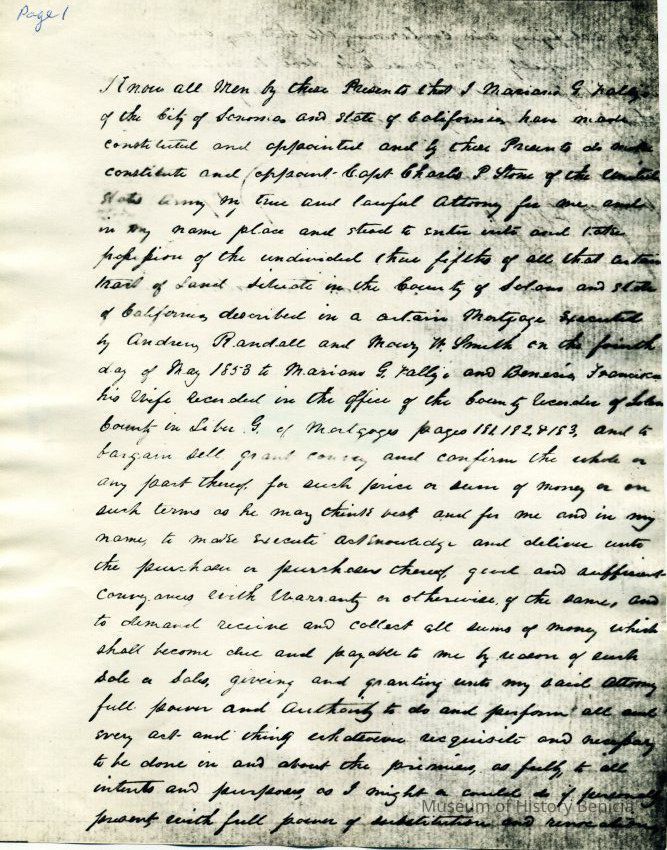 Page 1
Know all Men by these Presents that I Mariano G. Vallejo
of the City of Sonoma and State of California have made
constituted and appointed and by these Presents do make
constitute and appoint Capt Charles P Stone of the United
States Army my true and lawful Attorney for me and
in my name place and stead to enter into and take
possession of the undivided three fifths of all that certain
tract of Land situate in the County of Solano and State
of California described in a certain Mortgage executed
by Andrew Randall and Maury W. Smith on the fourth
day of May 1853 to Mariano G. Vallejo and Benecia Francisca
his Wife recorded in the office of the County Recorder of Solano
County in Liber G. of Mortgages pages 181, 182, & 183, and to
bargain sell grant convey and confirm the whole or
any part thereof, for such price or sum of money or on
such terms as he may think best and for me and in my
name, to make execute acknowledge and deliver unto
the purchaser or purchasers thereof, good and sufficient
conveyances with Warranty or otherwise, of the same, and
to demand receive and collect all sums of money which
shall become due and payable to me by reason of such
sale or sales, giveing and granting unto my said Attorney
full power and Authority to do and perform all and
every act and thing whatever requisite and necessary
to be done in and about the premises, as fully, to all
intents and purposes, as I might or could do if personally
present, with full power of substitution and revocation
Museum of History Benicia